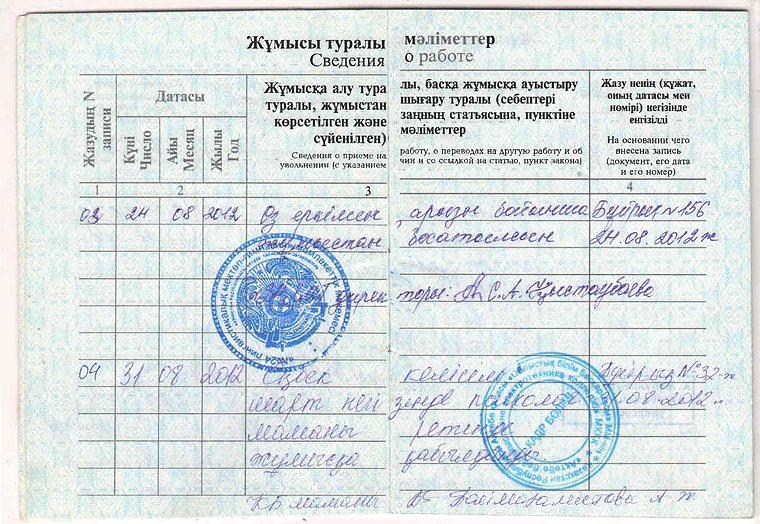 Жұмысы туралы мәліметтер
Сведения о работе
Жазудың N
записи
Датасы
Күні
Число
Айы
Месяц
Жылы
Год
Жұмысқа алу тура
туралы, жұмыстан
көрсетілген және
сүйенілген)
Сведения о приеме на
увольнении (с указанием
лы, басқа жұмысқа ауыстыру
шығару туралы (себептері
заңның статьясына, пунктіне
мәліметтер
работу, о переводах на другую работу и об
чии и со ссылкой на статью, пункт закона)
Жазу ненің (құжат,
оның датасы мен
нөмірі) негізінде
енгізілді
На основании чего
внесена запись
(документ, его дата
и его номер)
1 2 3 4
03 24 08 2012 Өз еркімен арызы бойынша Бұйрық N 156
жұмыстан босатылсын 24.08.2012 ж
директоры: С.А.
04 31 08 2012 Еңбек келісім Бұйрық № 32-ж
шарт 31-08-2012
маманы ретінде
жұмысқа қабылданды
КБ маманы
КАДР БӨЛІМІ